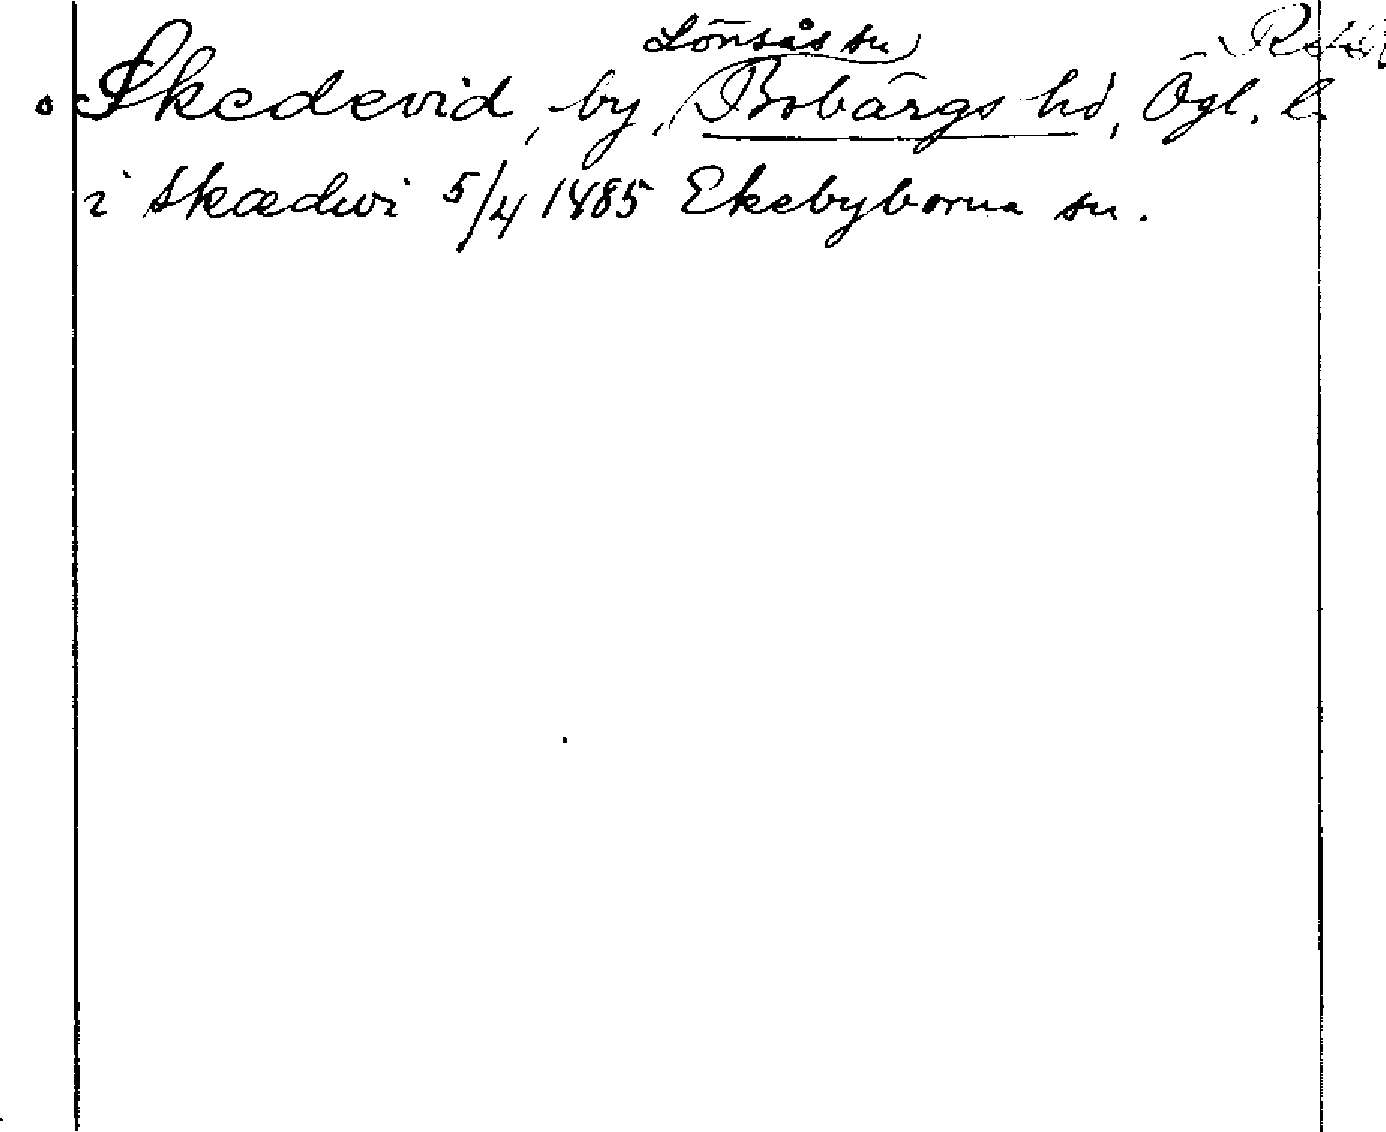 Lönsås sn
Skedevid, by, Bobärgs hd, Ögl. l.
i Skædwi 5/4 1485 Ekebyborna sn.